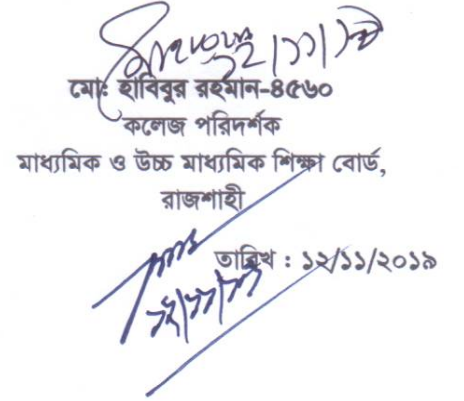 ১২/১১/১৯
মোঃ হাবিবুর রহমান-৪৫৬০
কলেজ পরিদর্শক
মাধ্যমিক ও উচ্চ মাধ্যমিক শিক্ষা বোর্ড,
রাজশাহী
তারিখ : ১২/১১/২০১৯
১২/১১/১৯